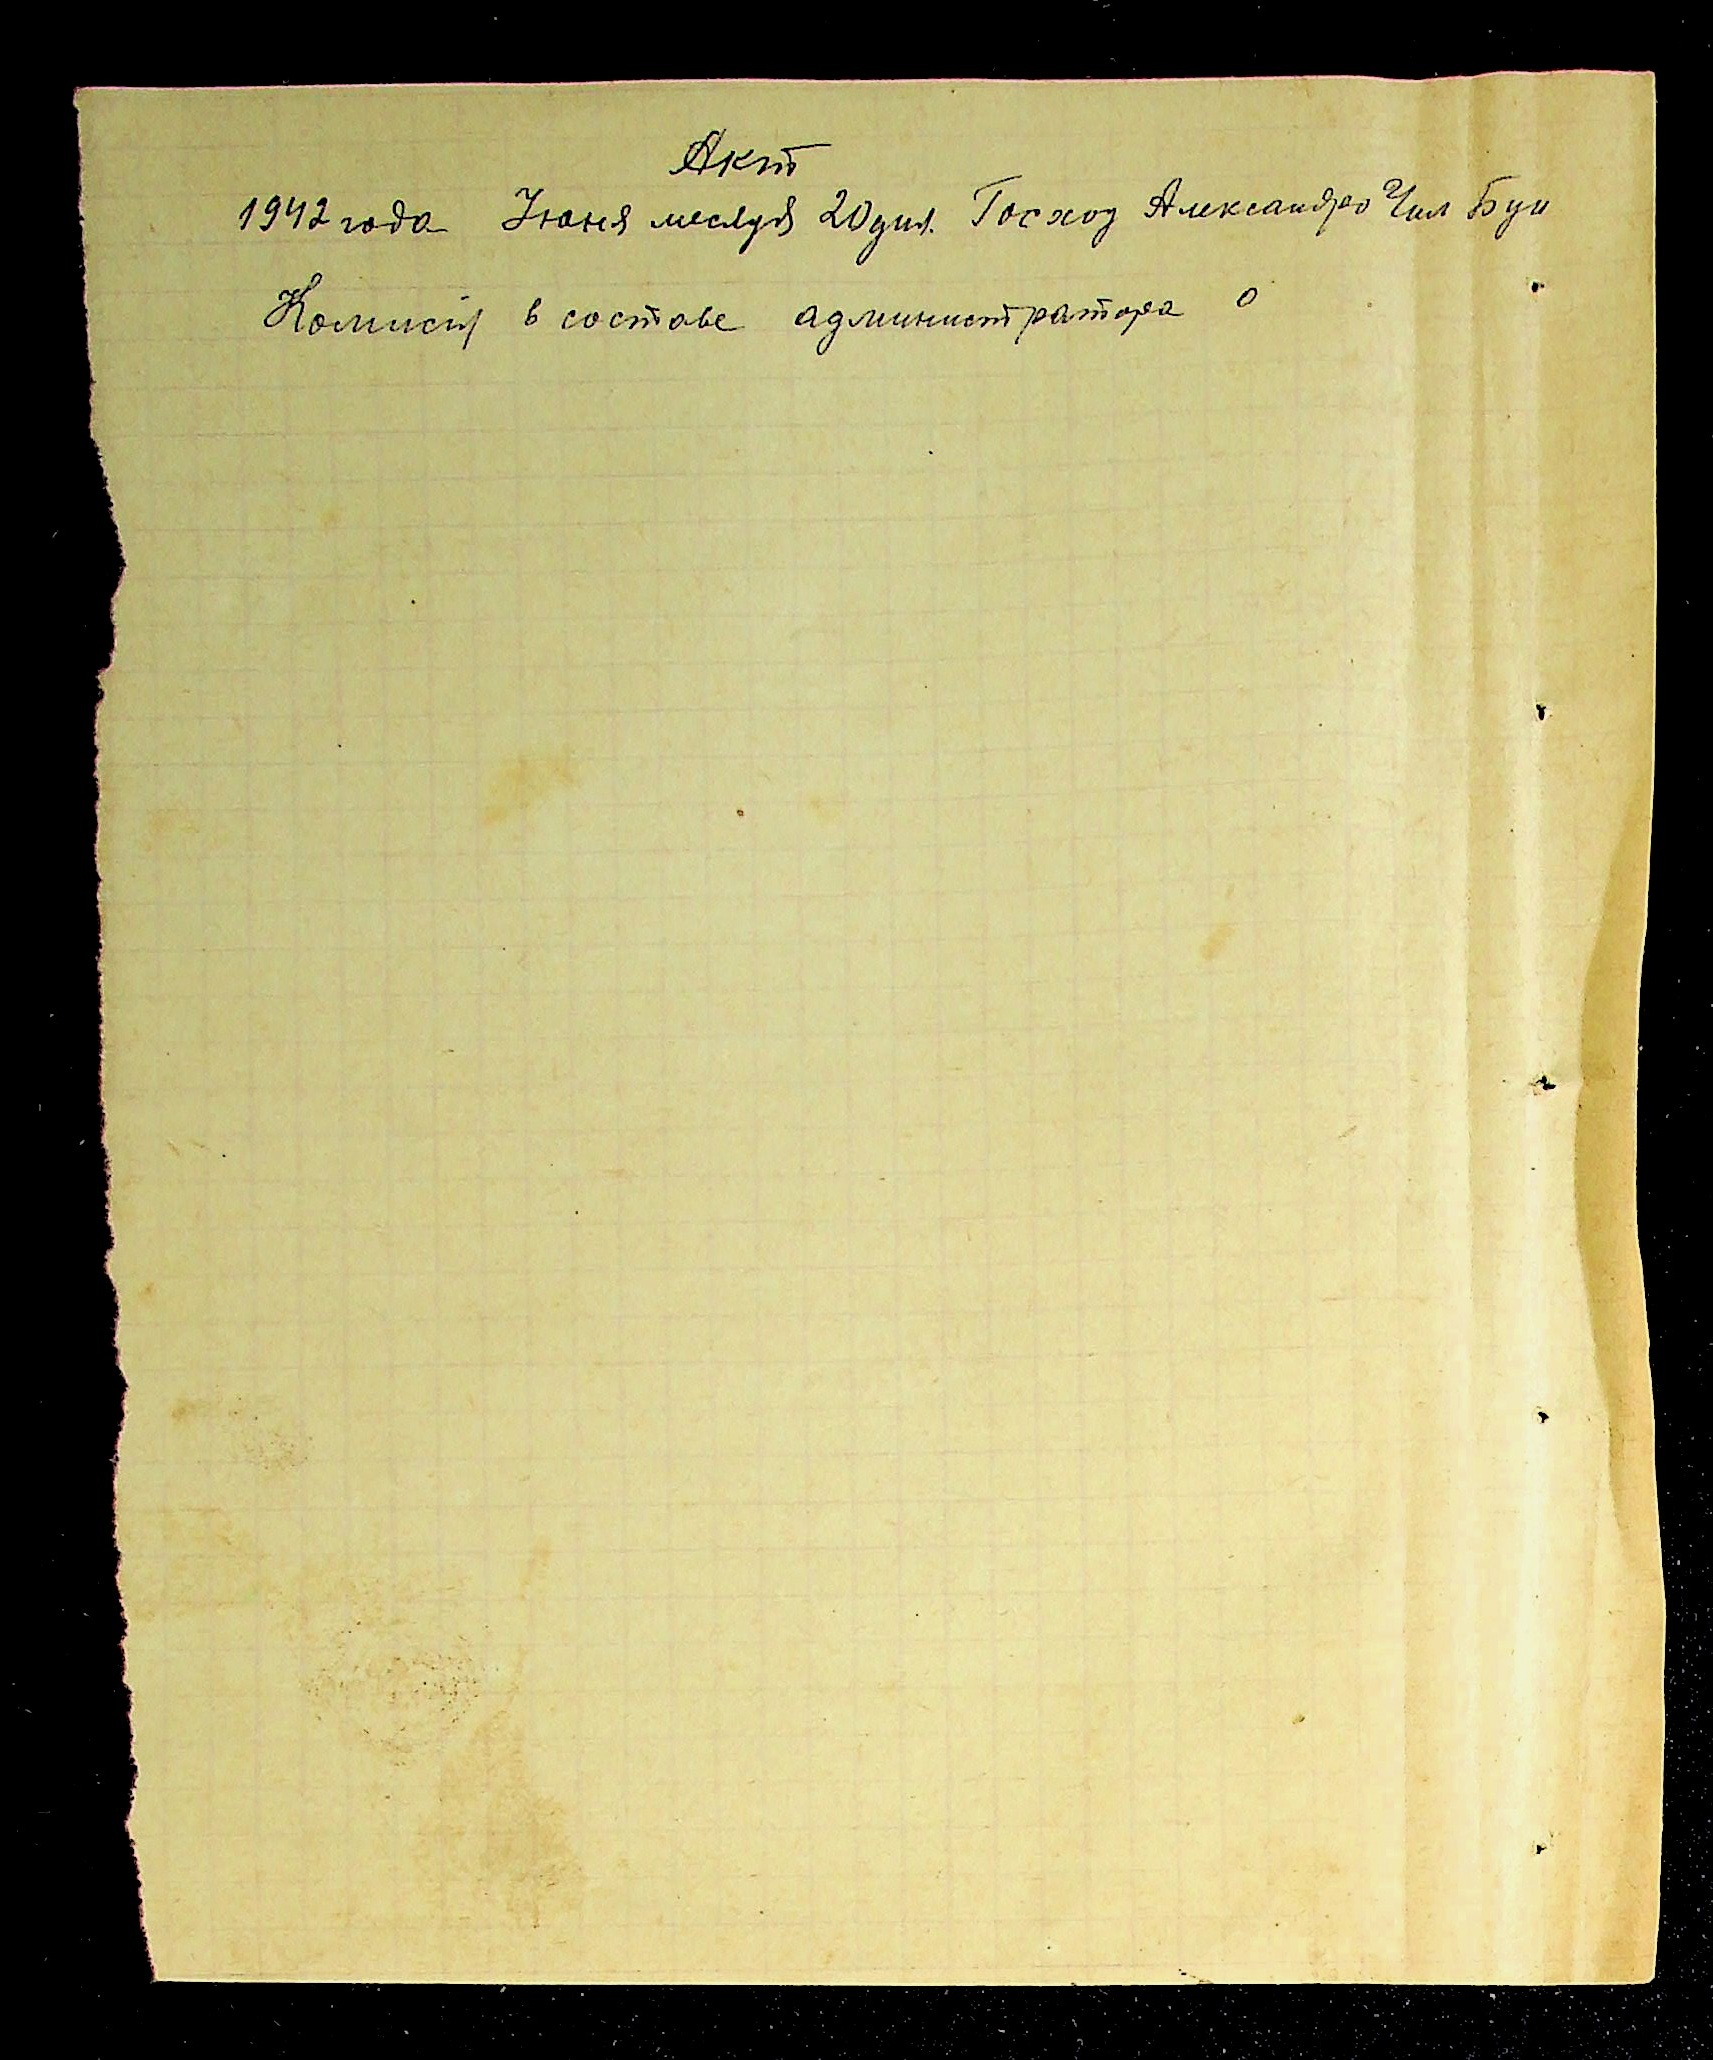 Акт
1942 года Июня месяця 20 дня. Госход Александро Чил Буи
Комисия в составе администратора о